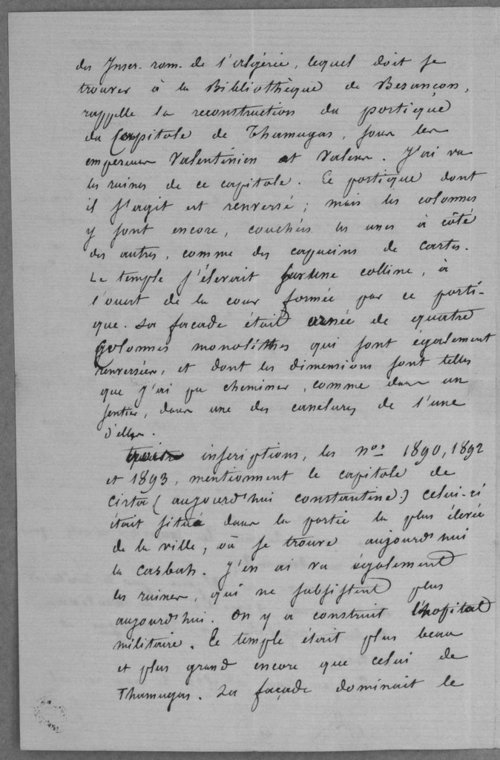 des Inscr. rom. de l'algérie, lequel doit se
trouver à la Bibliothèque de Besançon,
rappelle la reconstruction du portique
du Capitole de Thamugas, sous les
empereurs Valentinien et Valens. J'ai vu
les ruines de ce capitole. Le portique dont
il s'agit est renversé ; mais les colonnes
y sont encore, couchées les unes à côté
des autres, comme des capucins de cartes.
Le temple s'élevait sur une colline, à
l'ouest de la cour formée par ce porti-
que. Sa façade était ornée de quatre
colonnes monolithes qui sont également
renversées, et dont les dimensions sont telles
que j'ai pu cheminer, comme dans un
sentier, dans une des canelures de l'une
d'elles.
Trois inscriptions, les nos 1890, 1892
et 1893, mentionnent le capitole de
Cirta (aujourd'hui constantine) celui-ci
était situé dans la partie la plus élevée
de la ville, où se trouve aujourd'hui
la casbah. J'en ai vu également
les ruines, qui ne subsistent plus
aujourd'hui. On y a construit l'hopital
militaire. Le temple était plus beau
et plus grand encore que celui de
Thamugas. Sa façade dominait le